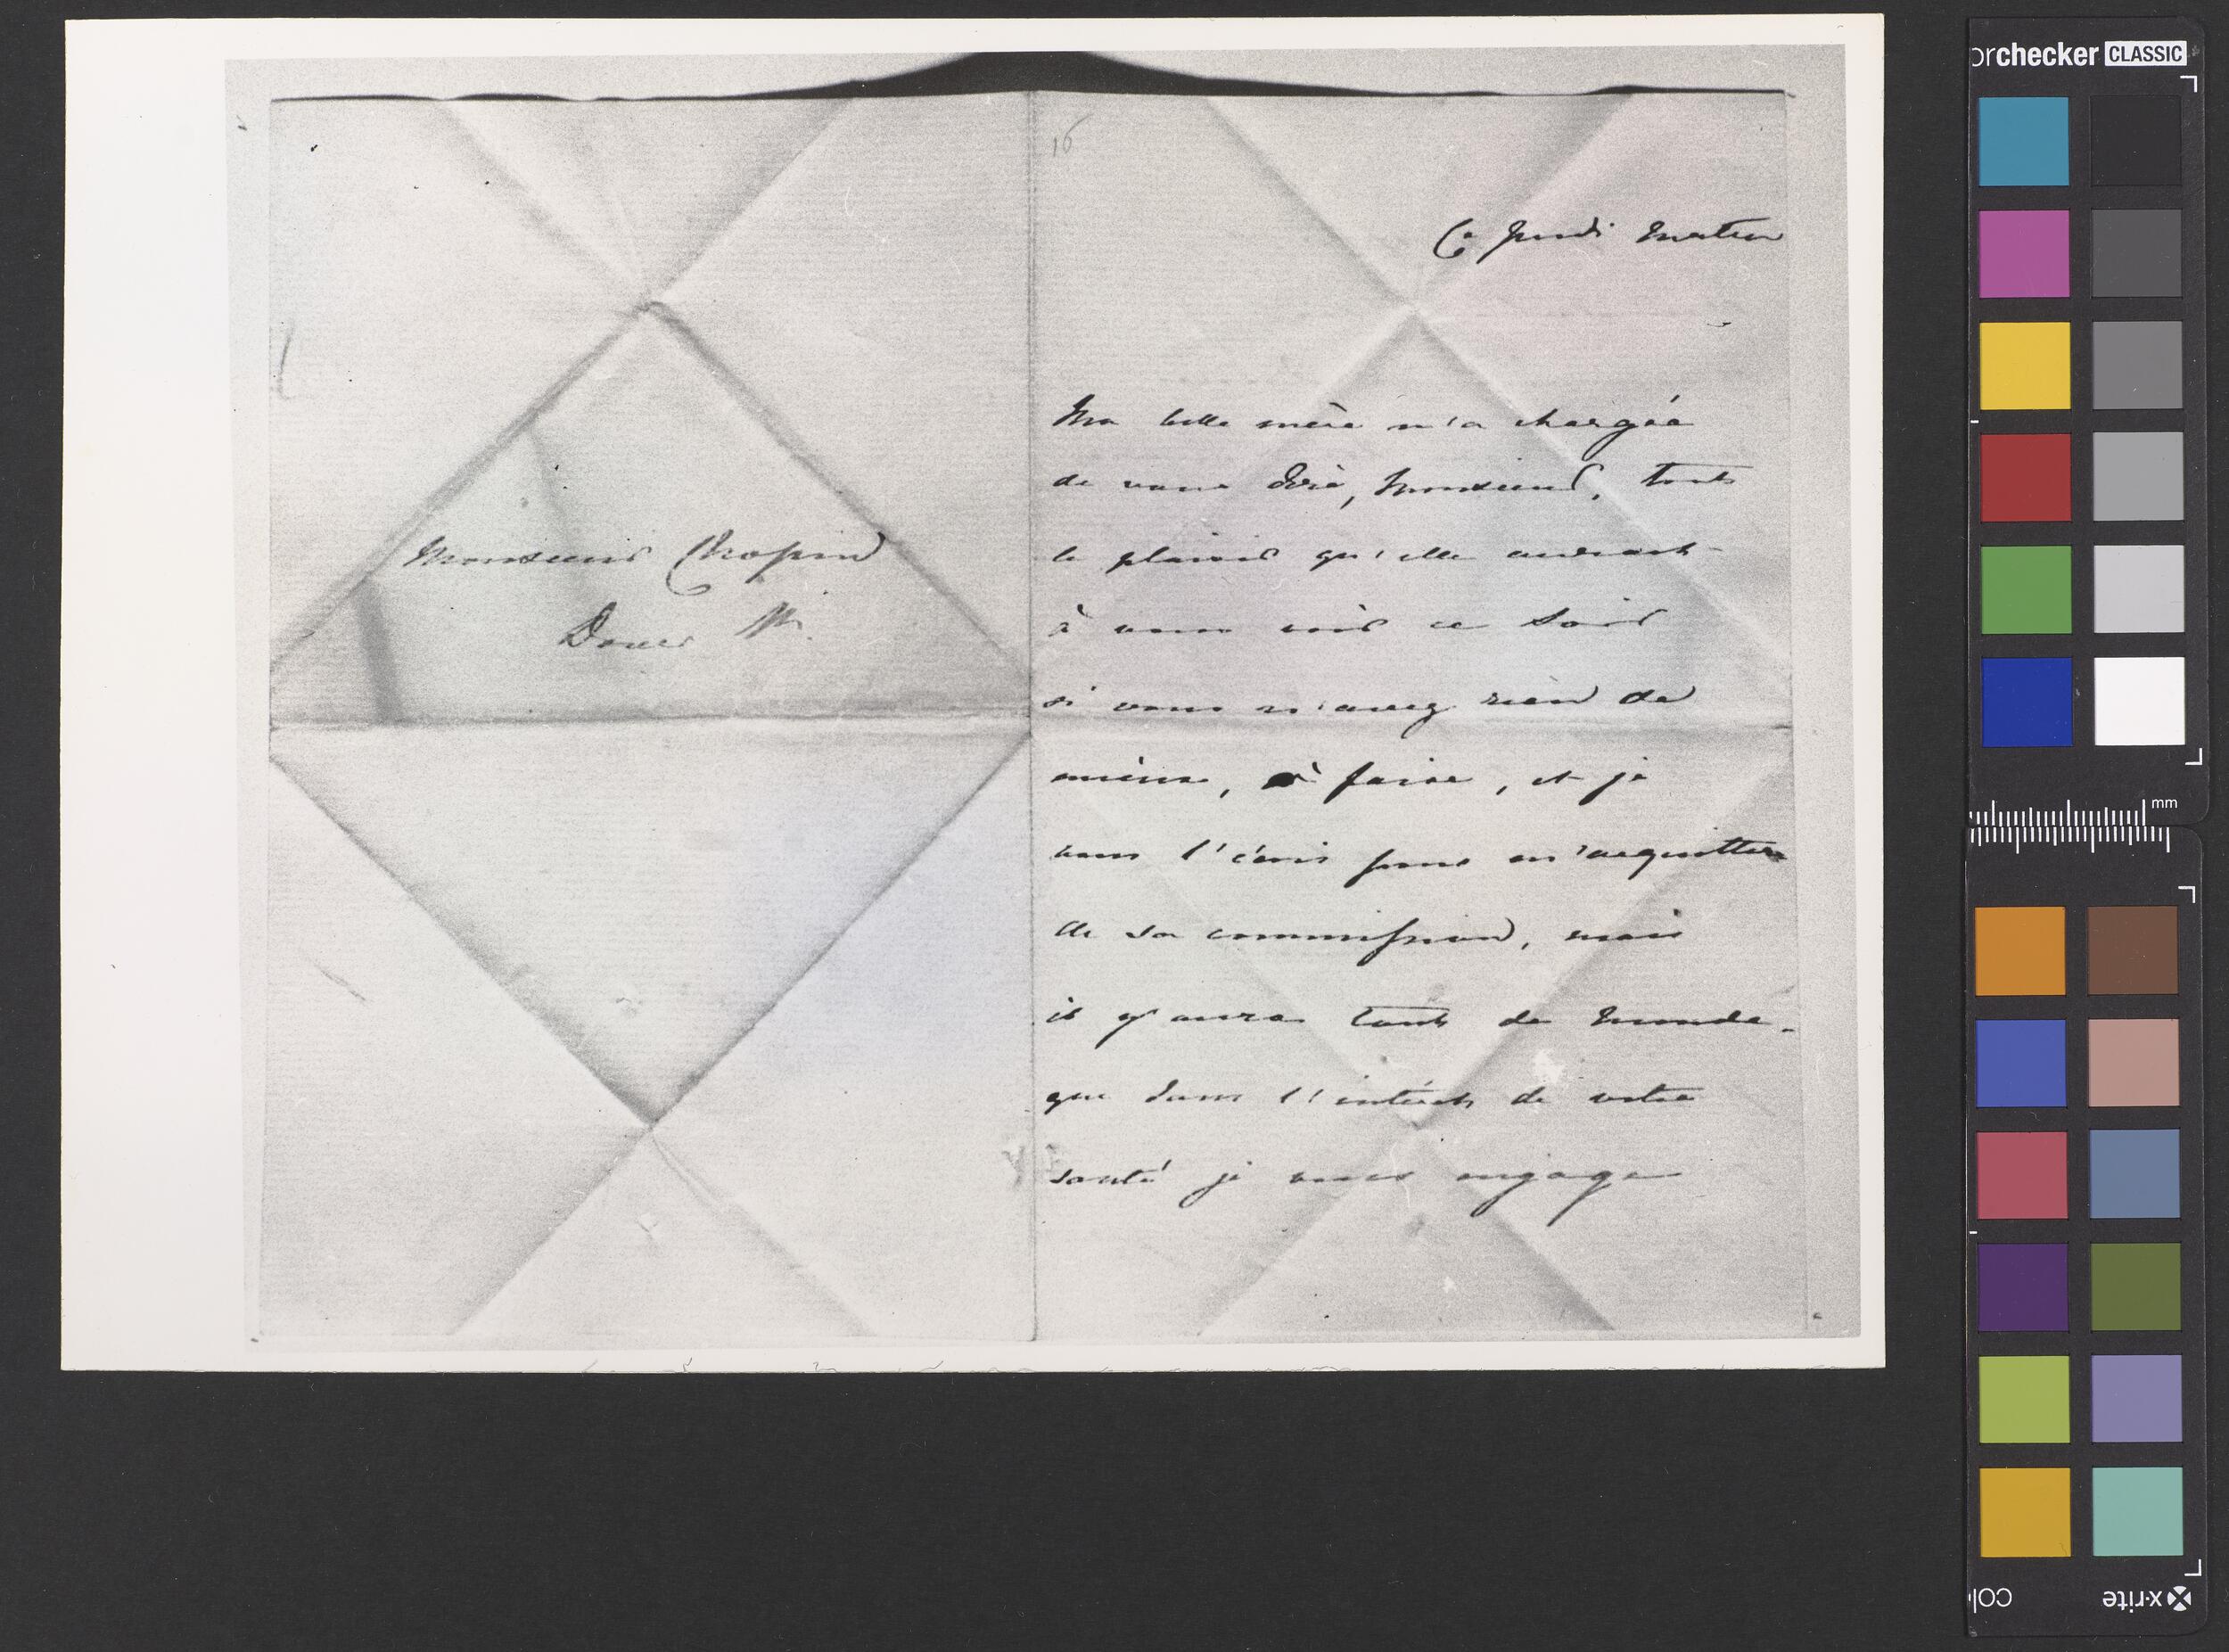 Monsieur Chopin
Dover St.
16
Ce Jeudi matin
Ma belle mère m'a chargée
de vous dire, Monsieur, tout
le plaisir qu'elle aurait
à vous voir ce soir
si vous n'avez rien de
mieux, à faire, et je
vous l'écris pour m'acquitter
de sa commission, mais
il y aura tant de monde
que dans l'intérêt de votre
santé je vous engage
orchecker CLASSIC
mm
x-rite
colo